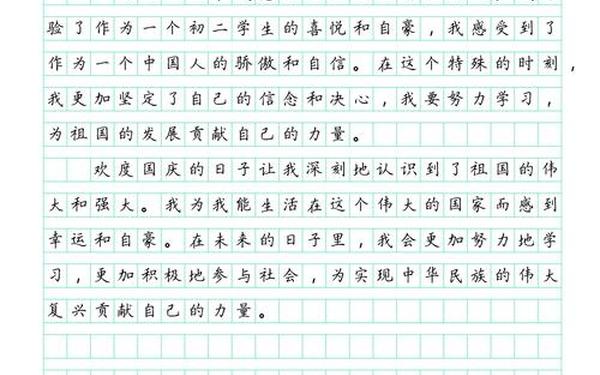 验了作为一个初二学生的喜悦和自豪，我感受到了
作为一个中国人的骄傲和自信。在这个特殊的时刻，
我更加坚定了自己的信念和决心，我要努力学习，
为祖国的发展贡献自己的力量。
欢度国庆的日子让我深刻地认识到了祖国的伟
大和强大。我为我能生活在这个伟大的国家而感到
幸运和自豪。在未来的日子里，我会更加努力地学
习，更加积极地参与社会，为实现中华民族的伟大
复兴贡献自己的力量。